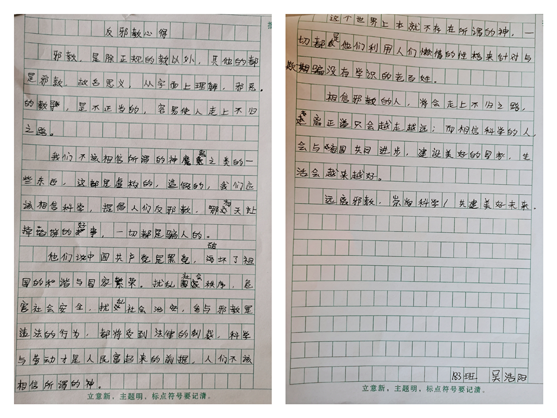 反邪教心得
邪教，是除正规的教以外，其他的都
是邪教，故名思义，从字面上理解，邪恶
的教，是不正当的，容易使人走上不归
之路。
我们不该相信所谓的神魔之类的一
些东西，这都是虚构的，造假的，我们应
该相信科学，提倡人们反邪教，
掉的事，一切都是骗人的。
他们说中国共产党是黑党，破坏了祖
国的和谐与国家繁荣。扰乱秩序，危
害社会安全，扰社会治安，参与邪教里
违法的行为，都将受到法律的制裁，科学
与劳动才是人民富起来的前提，人们不该
相信所谓的神。
立意新、主题明，标点符号要记清。
这个世界上本就不存在所谓的神，一
切都是他们利用人们懒惰的性格来针对与
欺骗没有学识的老百姓。
相信邪教的人，将会走上不归之路，
离正道只会越走越远；而相信科学的人，
会与祖国共同进步，建设美好的国家，生
活会越来越好。
远离邪教，崇尚科学！共建美好未来。
班 吴浩阳
立意新、主题明，标点符号要记清。